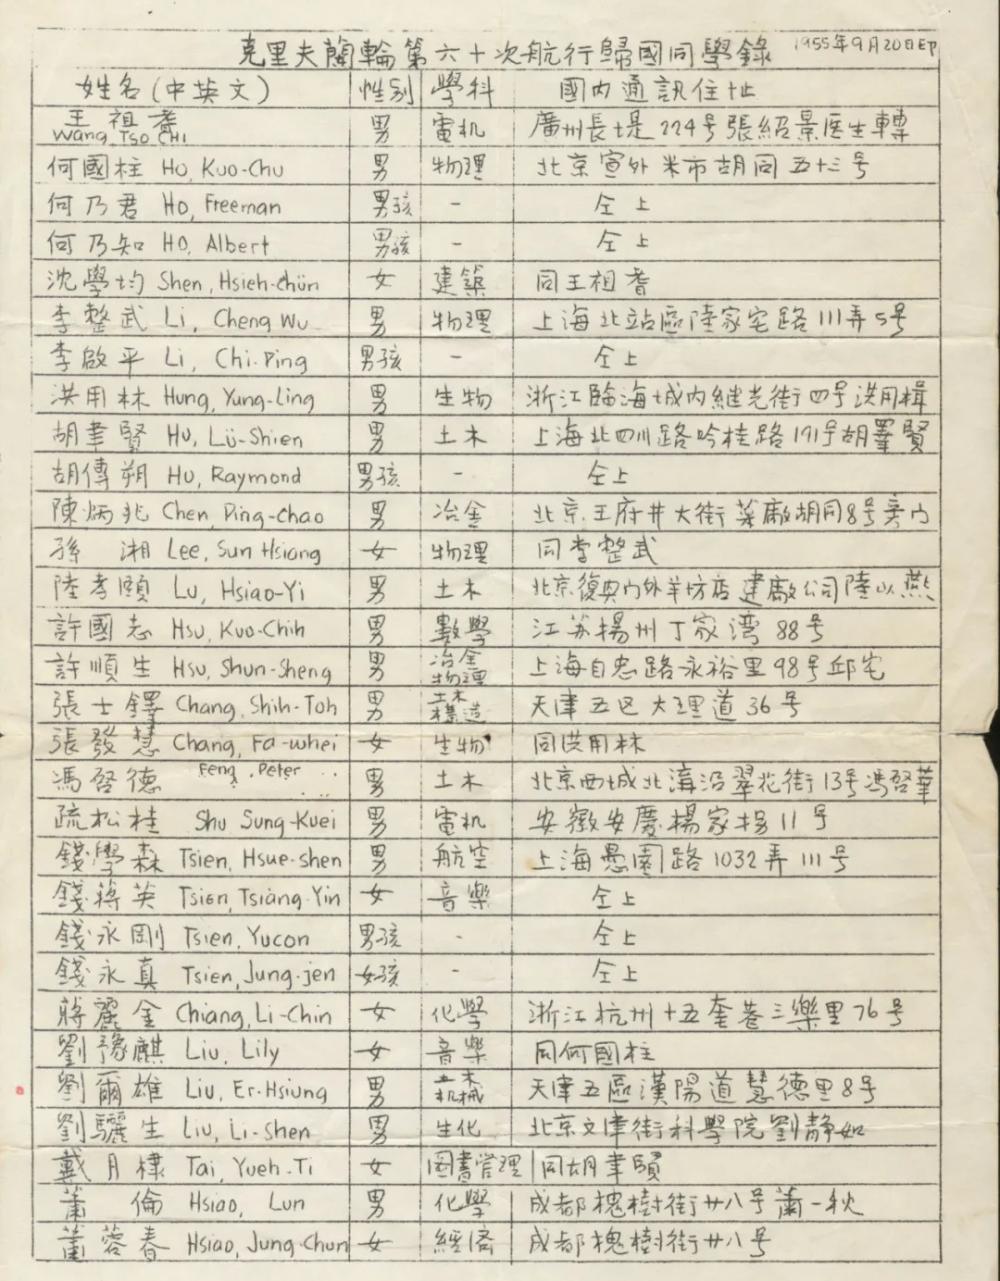 克里夫蘭輪第六十次航行歸國同學錄 1955年9月20日EP
姓名(中英文) 性別 學科 國內通訊住址
王祖耆 Wang, Tso CHI 男 電机 廣州長堤224号張紹景医生轉
何國柱 Ho, Kuo-Chu 男 物理 北京宣外米市胡同五十三号
何乃君 Ho, Freeman 男孩 - 仝上
何乃知 Ho, Albert 男孩 - 仝上
沈學均 Shen, Hsieh-chün 女 建築 同王祖耆
李整武 Li, Cheng Wu 男 物理 上海北站區陸家宅路111弄5号
李啟平 Li, Chi-Ping 男孩 - 仝上
洪用林 Hung, Yung-Ling 男 生物 浙江臨海城内継光街四号洪用楫
胡聿賢 Hu, Lü-Shien 男 土木 上海北四川路吟桂路191号胡睪賢
胡傳朔 Hu, Raymond 男孩 - 仝上
陳炳兆 Chen, Ping-Chao 男 冶金 北京王府井大街菜廠胡同8号旁门
孫湘 Lee, Sun Hsiang 女 物理 同李整武
陸孝頤 Lu, Hsiao-Yi 男 土木 北京復興门外羊坊店建廠公司陸以燕
許國志 Hsu, Kuo-Chih 男 數學 江苏揚州丁家湾88号
許順生 Hsu, Shun-Sheng 男 冶金物理 上海自忠路永裕里98号邱宅
張士鐸 Chang, Shih-Toh 男 土木構造 天津五区大理道36号
張發慧 Chang, Fa-whei 女 生物 同洪用林
馮啓德 Feng, Peter 男 土木 北京西城北溝沿翠花街13号馮啓華
疏松桂 Shu Sung-Kuei 男 電机 安徽安慶楊家拐11号
錢學森 Tsien, Hsue-shen 男 航空 上海愚園路1032弄111号
錢蔣英 Tsien, Tsiang-Yin 女 音樂 仝上
錢永剛 Tsien, Yucon 男孩 - 仝上
錢永真 Tsien, Jung-jen 女孩 - 仝上
蔣麗金 Chiang, Li-Chin 女 化學 浙江杭州十五奎巷三樂里76号
劉豫麒 Liu, Lily 女 音樂 同何國柱
劉爾雄 Liu, Er-Hsiung 男 土木机械 天津五區漢陽道慧德里8号
劉驪生 Liu, Li-Shen 男 生化 北京文津街科學院劉靜如
戴月棣 Tai, Yueh-Ti 女 圖書管理 同胡聿賢
蕭倫 Hsiao, Lun 男 化學 成都槐樹街廿八号蕭一秋
蕭蓉春 Hsiao, Jung-Chun 女 經済 成都槐樹街廿八号